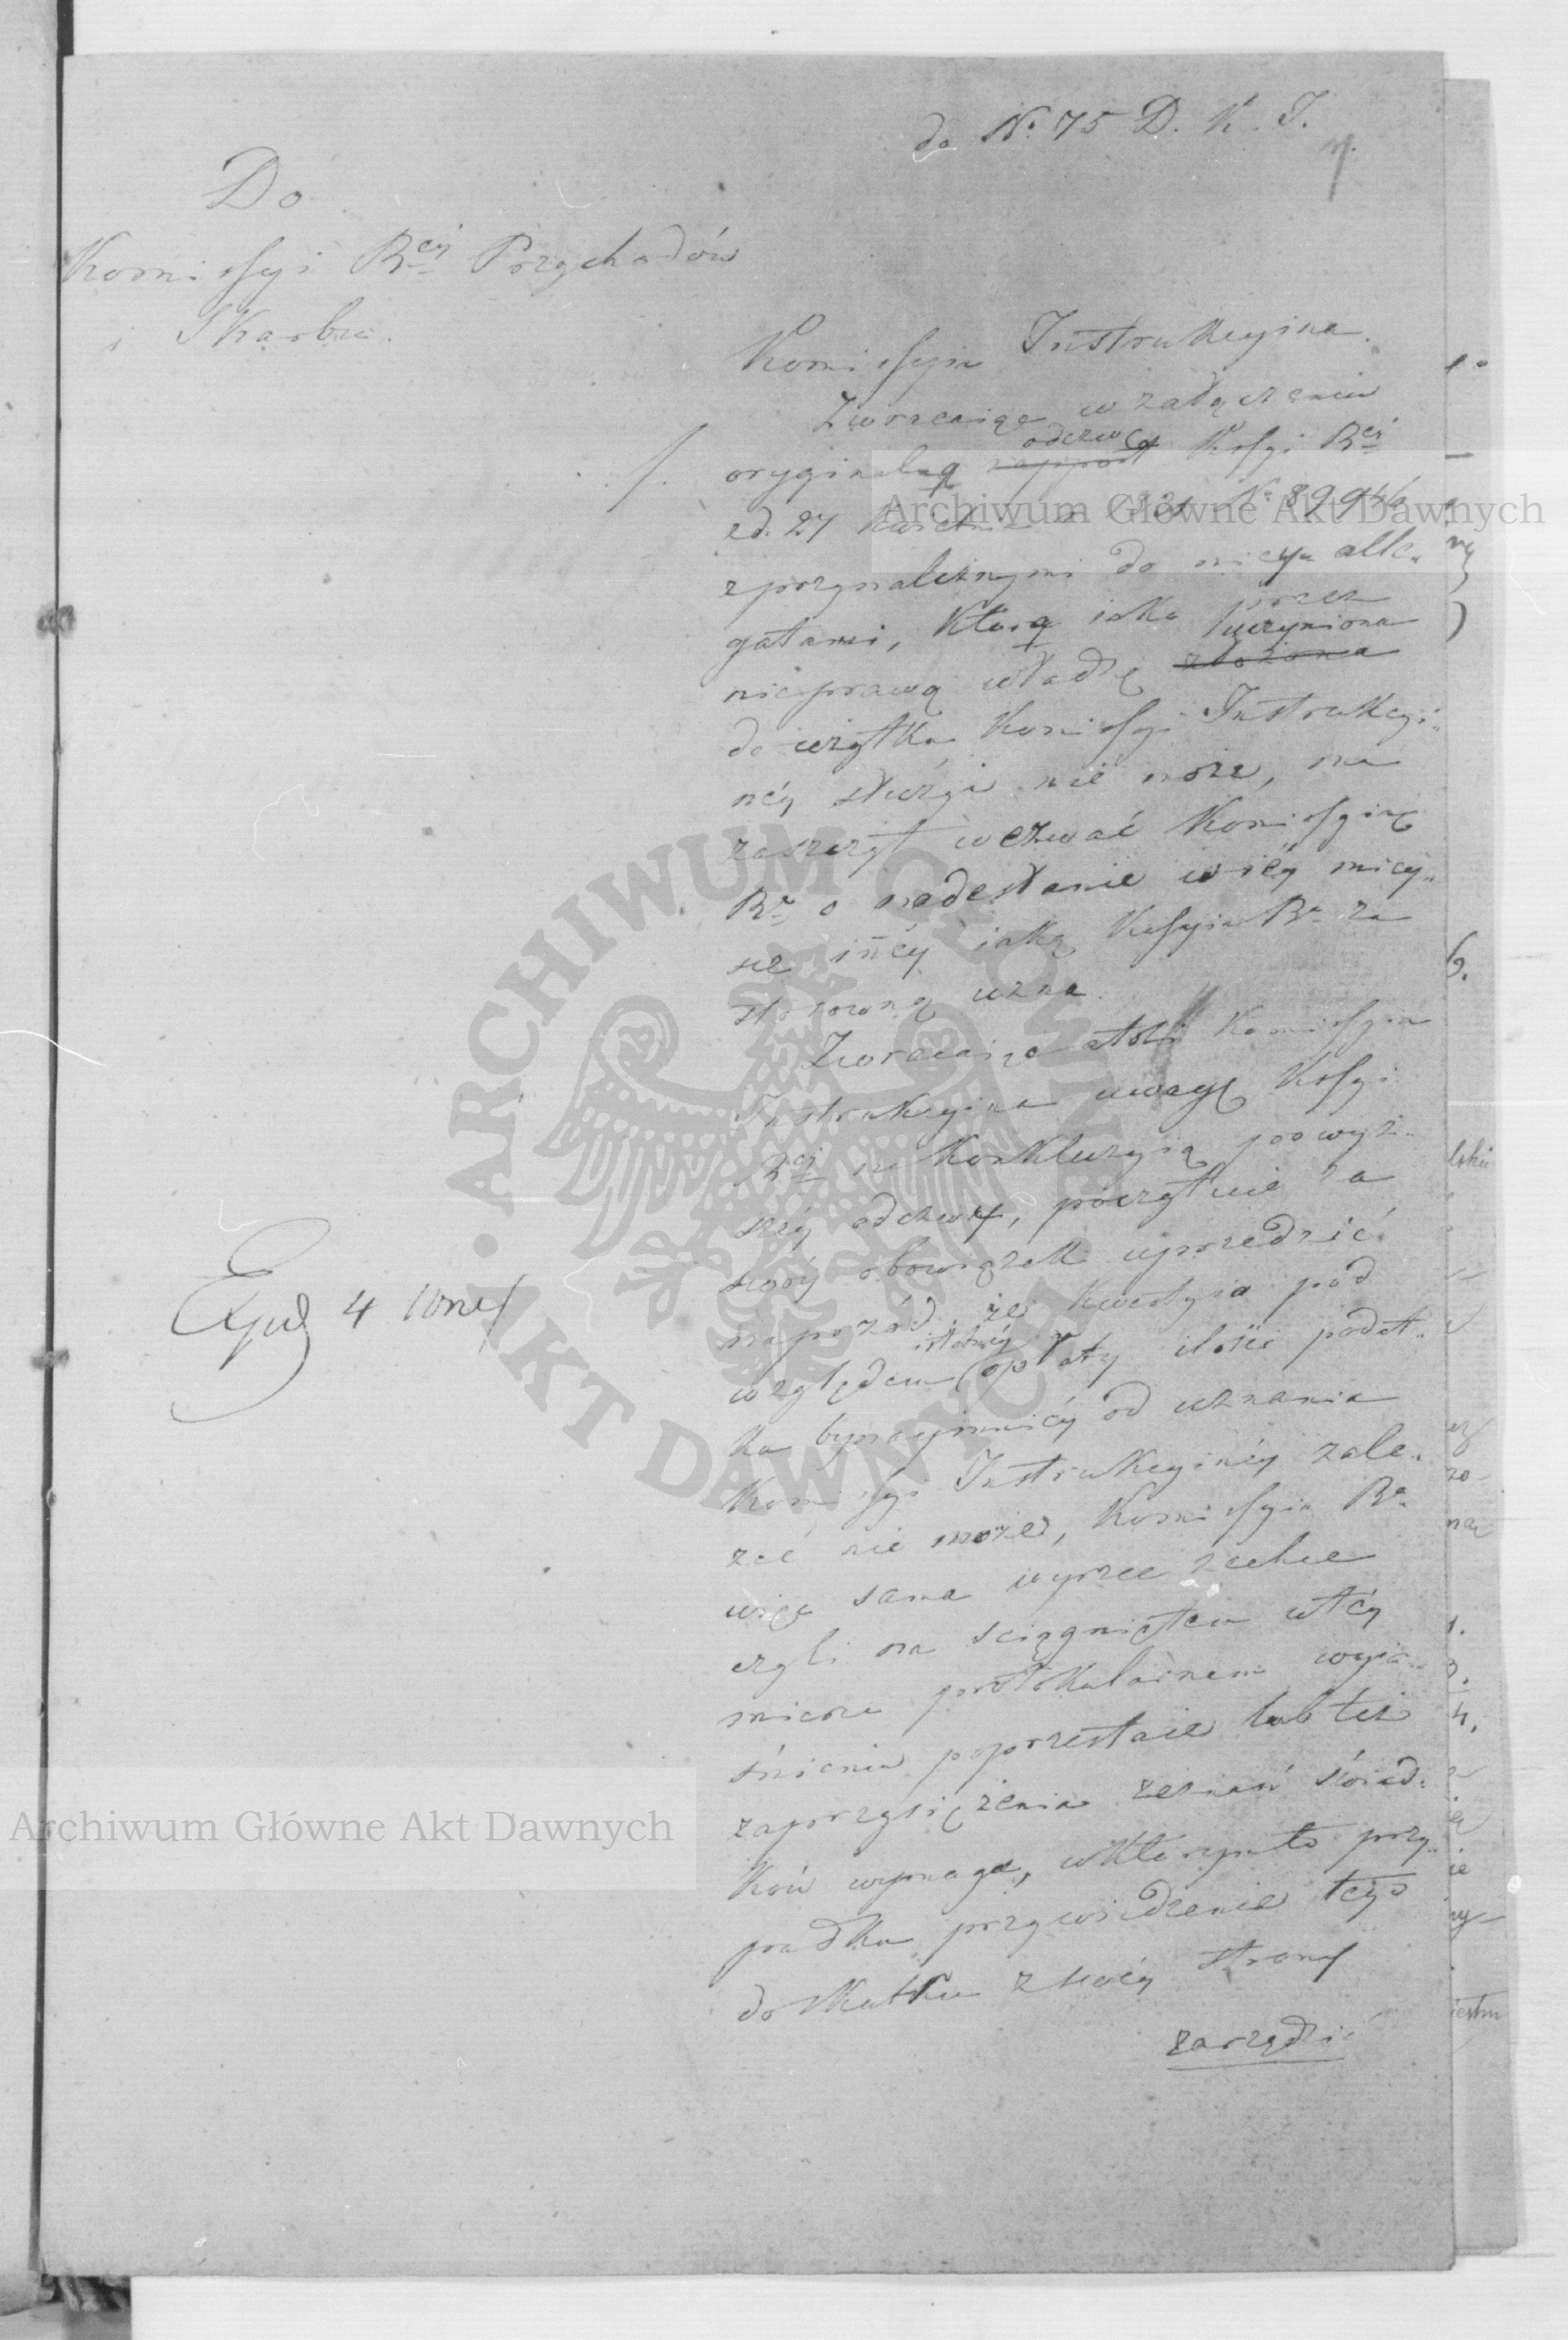 do No. 75 D. K. I.
Do
Komissyi Rcéy Przychodów
i Skarbu.
Komissyia Instrukcyina
Zwracaiąc w załączeniu
oryginalną odezwę rapport Kssyi Rcéy
z d. 27 Kwietnia No. 89946
z przynależnymi do niéy alle„
gatami, którą iako przez
nieprawą władzę uczyniona złożona
do użytku Komissyi Instrukcyi„
néy służyć nie może, ma
zaszczyt wezwać Komissyią
Rą o nadesłanie w iéy miey„
sce innéy iaką Kssyia Ra za
stosowną uzna.
Zwracaiąc Komissyia
Instrukcyina uwagę Kssyi
Rcéy na konkluzyią powyż„
széy odezwy, poczytuie za
swóy obowiązek uprzedzić
naprzód, że kwestyia pod
względem istotnéy opłaty ilości podat„
ku bynaymniéy od uznania
Komissyi Instrukcyinéy zale„
żéć nie może, Komissyia Ra
więc sama wyrzec zechce
czyli na ściągniętem w téy
mierze protokularnem wyia„
śnieniu poprzestaie lub też
zaprzysiężenia zeznań świad„
ków wymaga, w którym to przy„
padku przywiedzenie tego
do skutku z swéy strony
zarządzić
Exped 4
Archiwum Główne Akt Dawnych
ARCHIWUM GŁÓWNE AKT DAWNYCH
Archiwum Główne Akt Dawnych